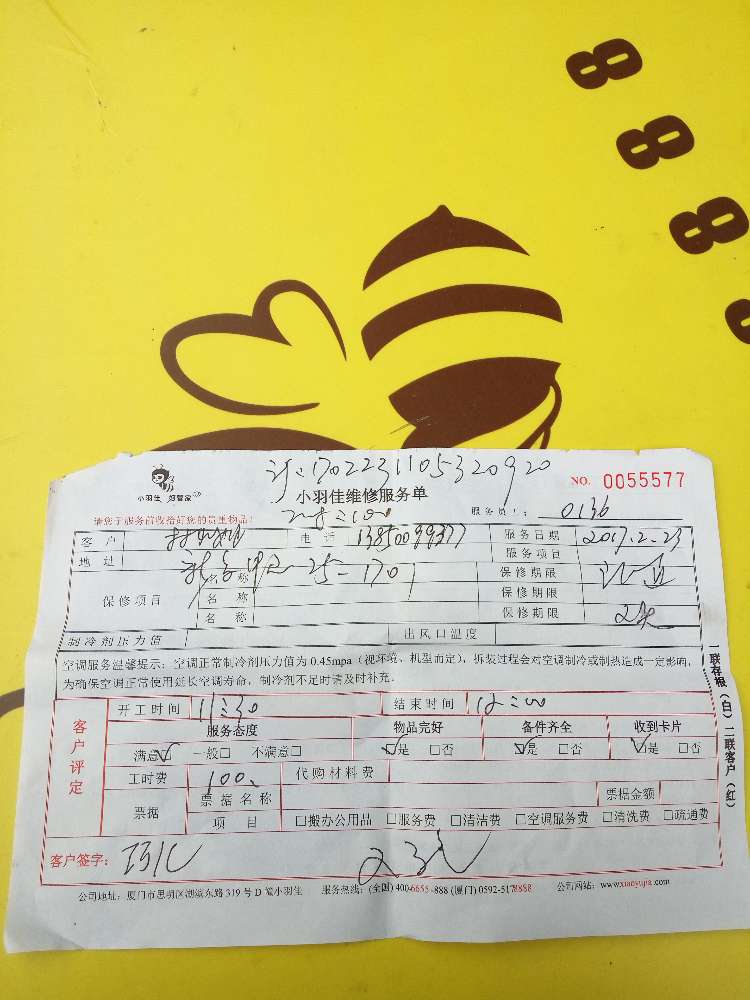 8
8
8
8
1702231105320920
小羽佳 好管家
小羽佳维修服务单
NO. 0055577
请您于服务前收拾好您的贵重物品!
服务员1: 0136
客户 电话 13850099377 服务日期 2017.2.23
地址 25-1701 服务项目
保修项目 名称 保修期限
名称 保修期限
名称 保修期限
制冷剂压力值 出风口温度
空调服务温馨提示:空调正常制冷剂压力值为 0.45mpa(视环境、机型而定),拆装过程会对空调制冷或制热造成一定影响,
为确保空调正常使用延长空调寿命,制冷剂不足时请及时补充。
客户评定
开工时间 11:30 结束时间 12:00
服务态度 物品完好 备件齐全 收到卡片
满意☑ 一般□ 不满意□ ☑是 □否 ☑是 □否 ☑是 □否
工时费 100. 代购材料费
票据 票据名称 票据金额
项目 □搬办公用品 □服务费 □清洁费 □空调服务费 □清洗费 □疏通费
客户签字:
公司地址:厦门市思明区湖滨东路 319 号 D 笪小羽佳 服务热线:(全国) 400-6655-888 (厦门) 0592-5178888 公司网站:www.xiaoyujia.com
一联存根(白)二联客户(红)